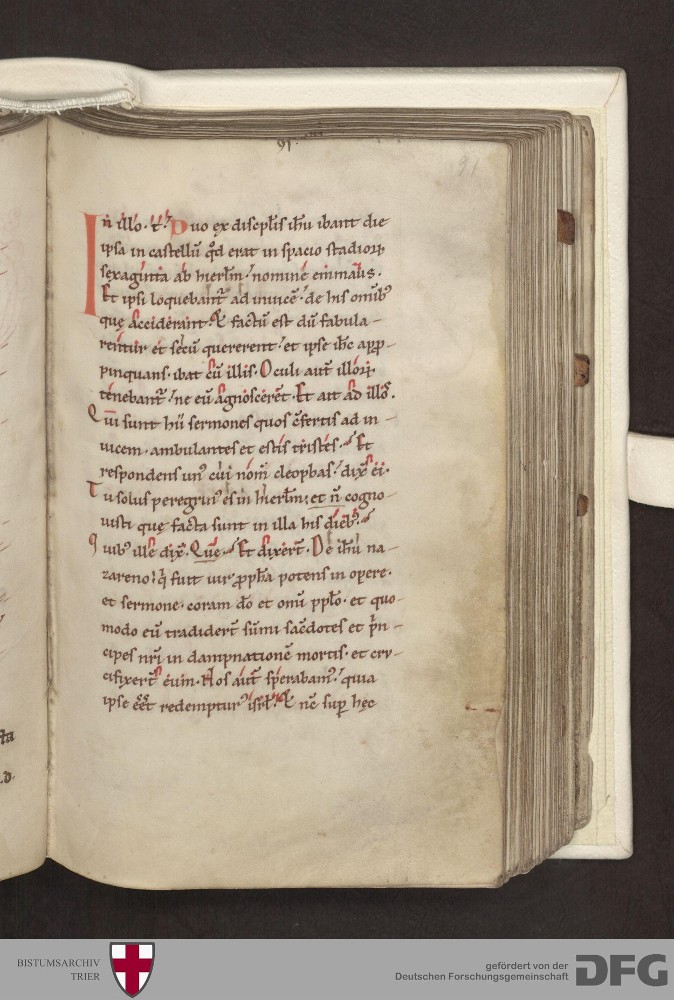 91
91
In illo · t̄ · Duo ex discipl̄is ih̄u ibant die
ipsa in castellū qd̄ erat in spacio stadiorꝝ
sexaginta ab hierl̄m · nomine emmaus ·
Et ipsi loquebant᷑ ad inuicē · de his omīb᷒
que̜ acciderant · Et factū est dū fabula-
rentur et secū quererent · et ipse ih̄c app̱-
pinquans · ibat cū illis · Oculi aut̄ illorꝝ
tenebant᷑ · ne eū agnoscerēt · Et ait ad illos ·
Qui sunt hii sermones quos c̄fertis ad in-
uicem · ambulantes et estis tristes · Et
respondens un᷒ cui nom̄ cleophas · dix̄ ei ·
Tu solus peregrin᷒ es in hierl̄m · et n̄ cogno-
uisti que̜ facta sunt in illa his dieb᷒ ·
Quib᷒ ille dix̄ · Que̜ · Et dixer̄t · De ih̄u na-
zareno · q̄ fuit uir ꝓph̄a potens in opere ·
et sermone · coram dō et om̄i ppl̄o · et quo-
modo eū tradider̄t sūmi sac̄dotes et p̄n-
cipes nr̄i in dampnationē mortis · et cru-
cifixer̄t eum · Nos aut̄ sperabam᷒ · quia
ipse eēt redemptur᷒ isrl̄ · Et nc̄ sup̄ he̜c
BISTUMSARCHIV
TRIER
gefördert von der
Deutschen Forschungsgemeinschaft
DFG